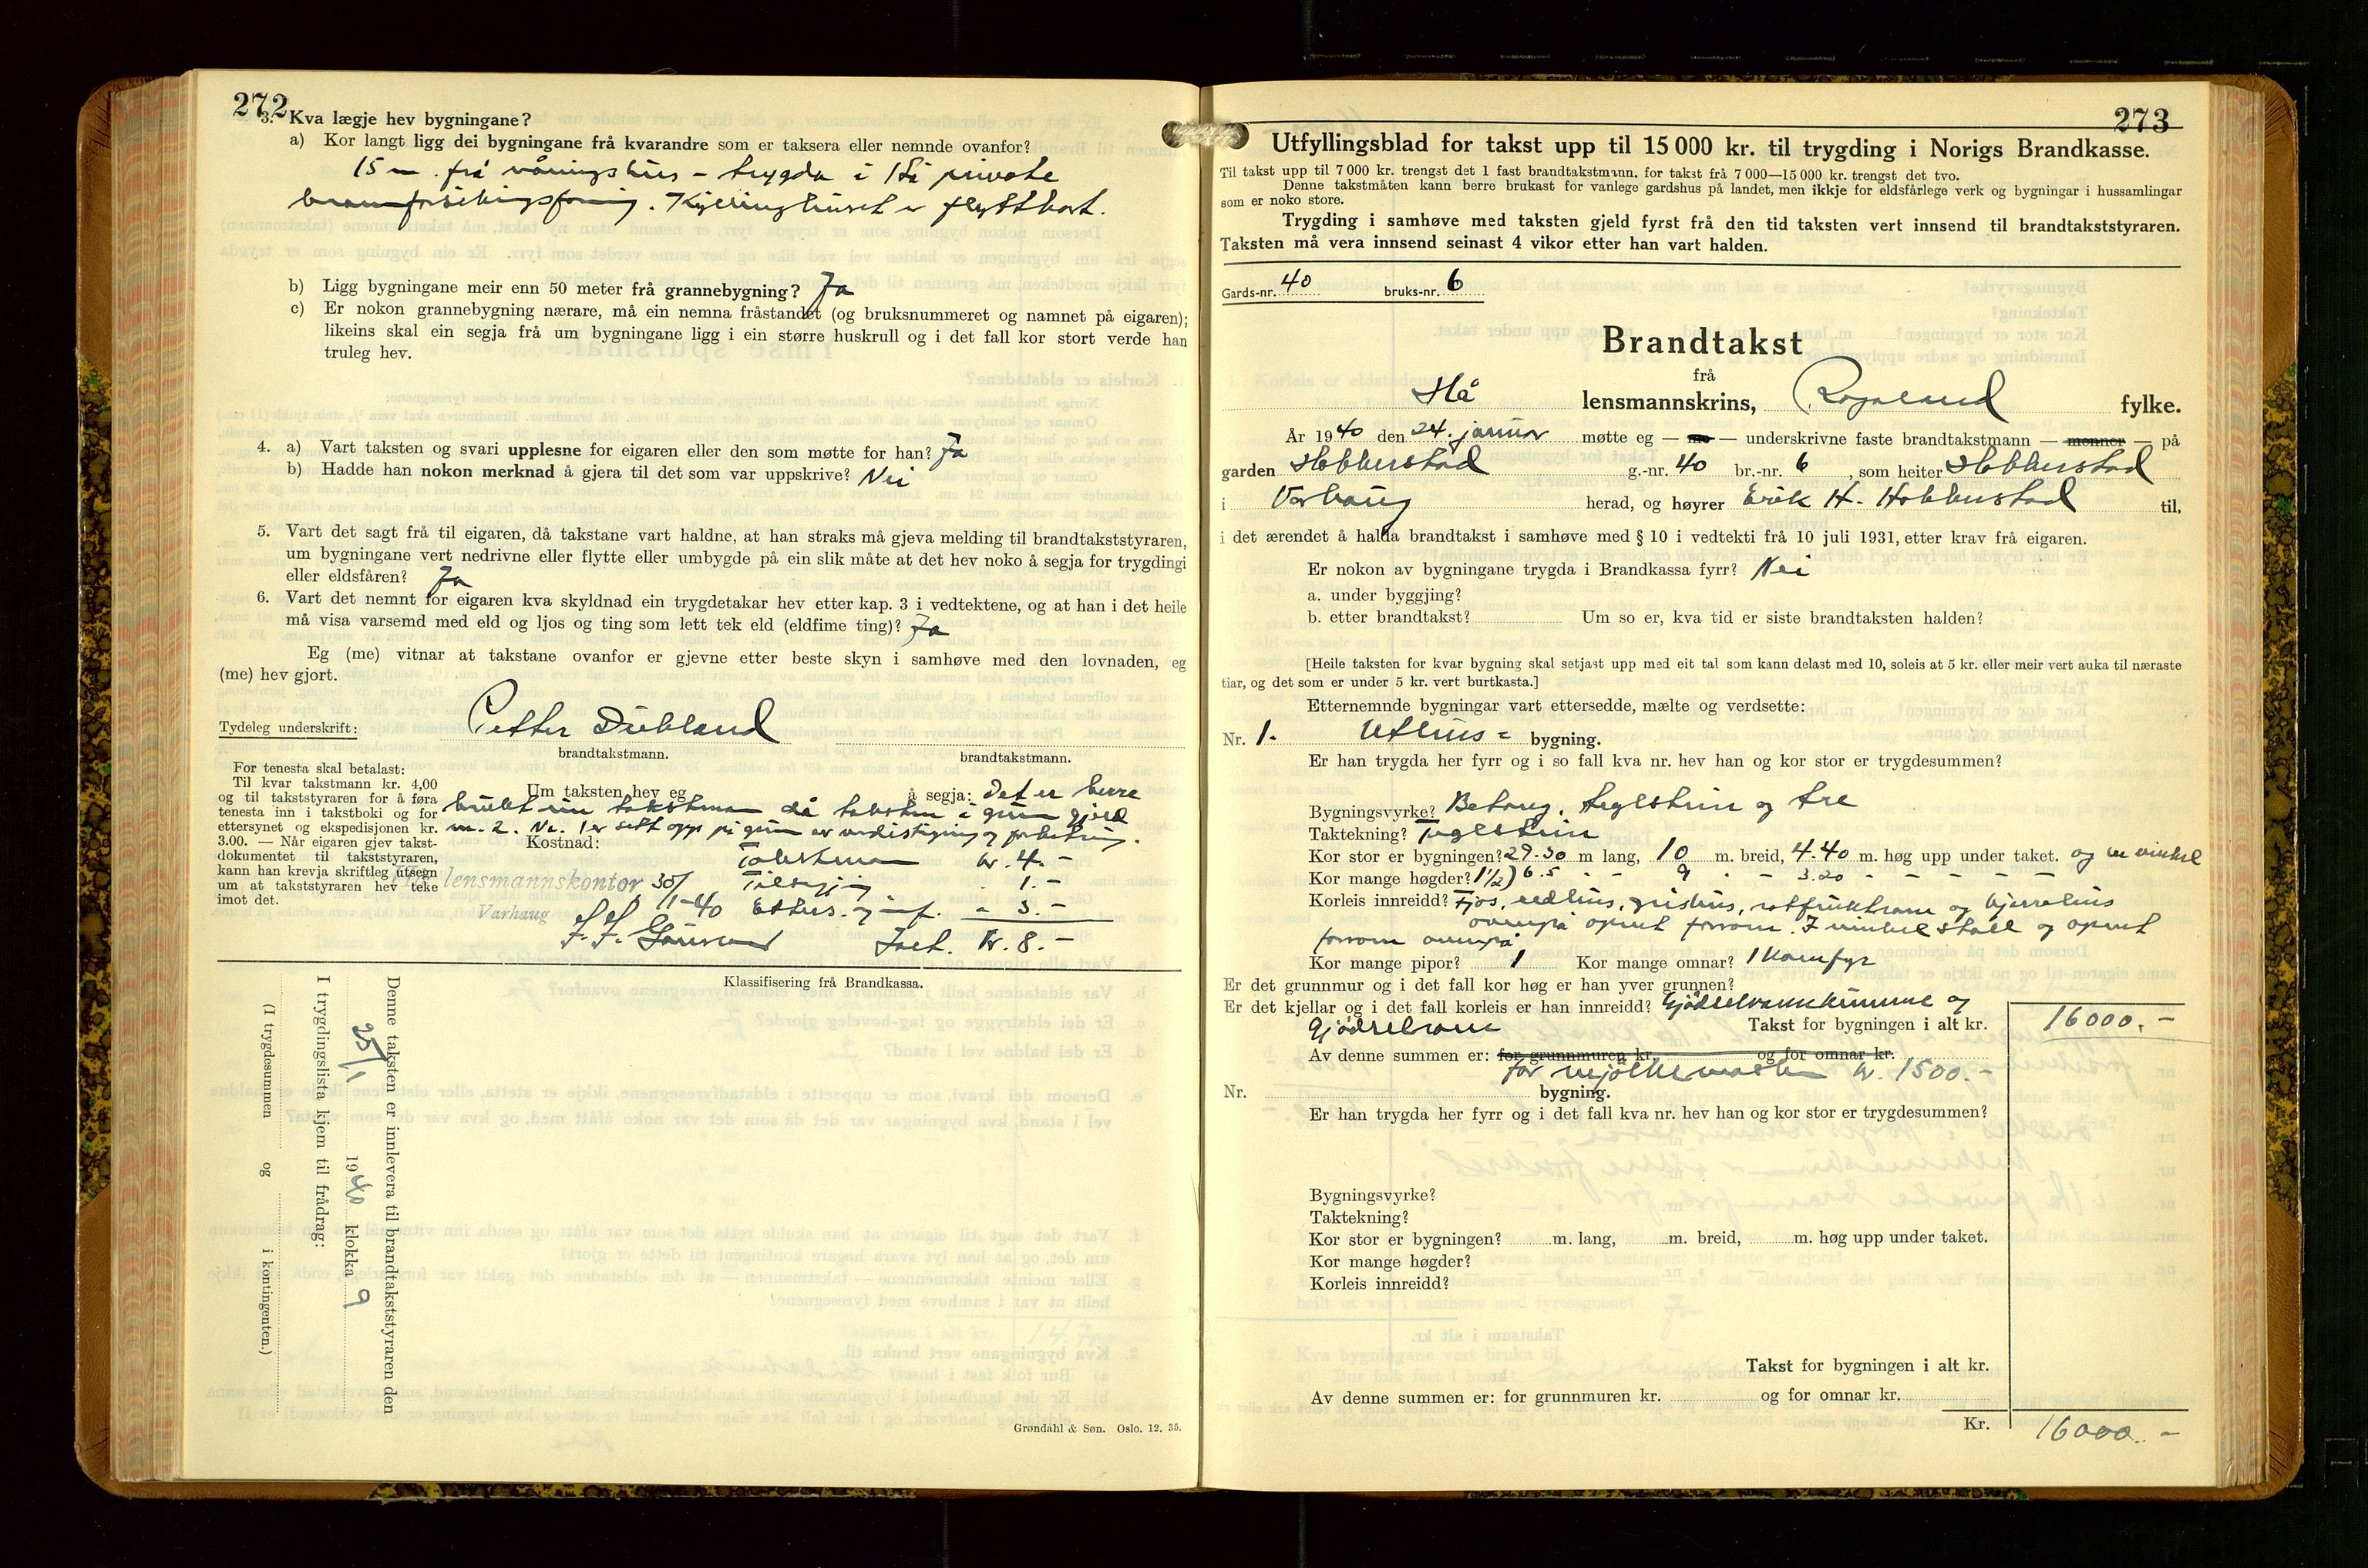 272
3. Kva lægje hev bygningane?
a) Kor langt ligg dei bygningane frå kvarandre som er taksera eller nemnde ovanfor?
15 m. frå våningshus - trygda i Hå private
Kyllinghuset er flyttbart.
b) Ligg bygningane meir enn 50 meter frå grannebygning? Ja
c) Er nokon grannebygning nærare, må ein nemna fråstandet (og bruksnummeret og namnet på eigaren);
likeins skal ein segja frå um bygningane ligg i ein større huskrull og i det fall kor stort verde han
truleg hev.
4. a) Vart taksten og svari upplesne for eigaren eller den som møtte for han? Ja
b) Hadde han nokon merknad å gjera til det som var uppskrive? Nei
5. Vart det sagt frå til eigaren, då takstane vart haldne, at han straks må gjeva melding til brandtakststyraren,
um bygningane vert nedrivne eller flytte eller umbygde på ein slik måte at det hev noko å segja for trygdingi
eller eldsfåren? Ja
6. Vart det nemnt for eigaren kva skyldnad ein trygdetakar hev etter kap. 3 i vedtektene, og at han i det heile
må visa varsemd med eld og ljos og ting som lett tek eld (eldfime ting)? Ja
Eg (me) vitnar at takstane ovanfor er gjevne etter beste skyn i samhøve med den lovnaden, eg
(me) hev gjort.
Tydeleg underskrift: Petter Dubland
brandtakstmann. brandtakstmann.
For tenesta skal betalast:
Til kvar takstmann kr. 4,00
og til takststyraren for å føra
tenesta inn i takstboki og for
ettersynet og ekspedisjonen kr.
3.00. — Når eigaren gjev takst-
dokumentet til takststyraren,
kann han krevja skriftleg útsegn
um at takststyraren hev teke
imot det.
Um taksten hev eg å segja: det er berre
brukt ein takstman då taksten i grunn gjeld
nr. 2. Nr. 1 er sett opp på grunn av verdistigning og forbetring.
Kostnad: Takstman kr. 4.-
lensmannskontor 30/1-40 Tilsegjing " 1.-
Varhaug Etters. og innf. " 3.-
Ialt. Kr. 8.-
Klassifisering frå Brandkassa.
Denne taksten er innlevera til brandtakststyraren den
25/1 1940 klokka 9
I trygdingslista kjem til frådrag:
(I trygdesummen og i kontingenten.)
Grøndahl & Søn. Oslo. 12. 35.
273
Utfyllingsblad for takst upp til 15 000 kr. til trygding i Norigs Brandkasse.
Til takst upp til 7 000 kr. trengst det 1 fast brandtakstmann, for takst frå 7 000—15 000 kr. trengst det tvo.
Denne takstmåten kann berre brukast for vanlege gardshus på landet, men ikkje for eldsfårlege verk og bygningar i hussamlingar
som er noko store.
Trygding i samhøve med taksten gjeld fyrst frå den tid taksten vert innsend til brandtakststyraren.
Taksten må vera innsend seinast 4 vikor etter han vart halden.
Gards-nr. 40 bruks-nr. 6
Brandtakst
frå
Hå lensmannskrins, Rogaland fylke.
År 1940 den 24. januar møtte eg — me — underskrivne faste brandtakstmann — menner — på
garden Hobberstad g.-nr. 40 br.-nr. 6, som heiter Hobberstad
i Varhaug herad, og høyrer Erik H. Hobberstad til,
i det ærendet å halda brandtakst i samhøve med § 10 i vedtekti frå 10 juli 1931, etter krav frå eigaren.
Er nokon av bygningane trygda i Brandkassa fyrr? Nei
a. under byggjing?
b. etter brandtakst? Um so er, kva tid er siste brandtaksten halden?
[Heile taksten for kvar bygning skal setjast upp med eit tal som kann delast med 10, soleis at 5 kr. eller meir vert auka til næraste
tiar, og det som er under 5 kr. vert burtkasta.]
Etternemnde bygningar vart ettersedde, mælte og verdsette:
Nr. 1. Uthus= bygning.
Er han trygda her fyrr og i so fall kva nr. hev han og kor stor er trygdesummen?
Bygningsvyrke? Betong, teglstein og tre
Taktekning? Teglstein
Kor stor er bygningen? 29.30 m lang, 10 m. breid, 4.40 m. høg upp under taket. og en vinkel
Kor mange høgder? 1½) 6.5 " " 9 " - 3.20 " - - - -
Korleis innreidd? Fjos, redhus, grishus, rotfruktrom og kjerrehus
ovenpå opent forrom. I vinkel stall og opent
forrom ovenpå
Kor mange pipor? 1 Kor mange omnar? 1 Komfyr
Er det grunnmur og i det fall kor høg er han yver grunnen?
Er det kjellar og i det fall korleis er han innreidd? Gjødselvannkumme og
Gjødselrom Takst for bygningen i alt kr. 16000.-
Av denne summen er: for grunnmuren kr. og for omnar kr.
for mjølkemaskin kr. 1500.-
Nr. bygning.
Er han trygda her fyrr og i det fall kva nr. hev han og kor stor er trygdesummen?
Bygningsvyrke?
Taktekning?
Kor stor er bygningen? m. lang, m. breid, m. høg upp under taket.
Kor mange høgder?
Korleis innreidd?
Takst for bygningen i alt kr.
Av denne summen er: for grunnmuren kr. og for omnar kr.
Kr. 16000.-